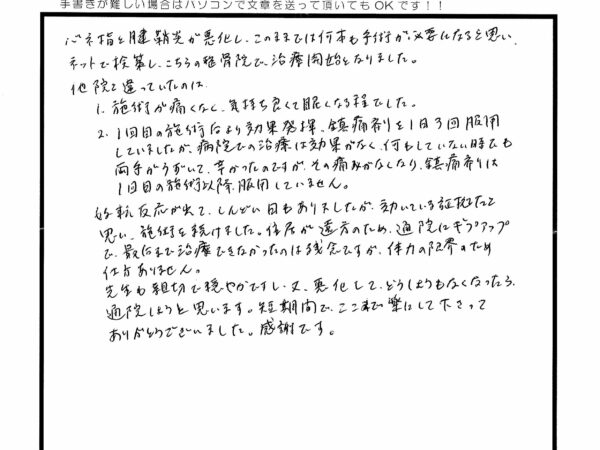 手書きが難しい場合はパソコンで文章を送って頂いてもOKです！！
バネ指と腱鞘炎が悪化し、このままでは何本も手術が必要になると思い、
ネットで検索し、こちらの整骨院で、治療開始となりました。
他院と違っていたのは
1. 施術が痛くなく、気持ち良くて眠くなる程でした。
2. 1回目の施術后より効果発揮、鎮痛剤を1日3回服用
していましたが、病院での治療は効果がなく、何もしていない時でも
両手がうずいて、辛かったのですが、その痛みがなくなり、鎮痛剤は
1回目の施術以降、服用していません。
好転反応が出て、しんどい日もありましたが、効いている証拠だと
思い、施術を続けました。住居が遠方のため、通院にギブアップ
で、最后まで治療できなかったのは残念ですが、体力の限界のため
仕方ありません。
先生も親切で穏やかですし、又、悪化して、どうしようもなくなったら、
通院しようと思います。短期間で、ここまで楽にして下さって
ありがとうございました。感謝です。